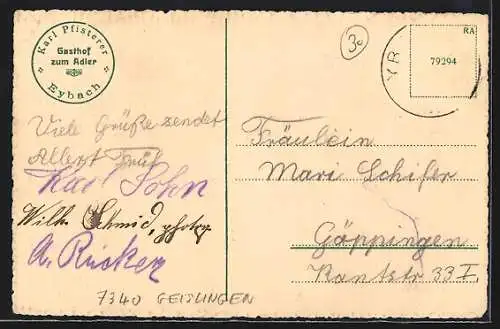 Karl Pfisterer
Gasthof
zum Adler
Eybach
30
YB
RA
79294
Viele Grüße sendet
Allerst Früh
Karl Sohn
Wilh. Schmid, photogr
A. Rücker
Fräulein
Mari Schifer
Göppingen
Kantstr 33 I.
7340 GEISLINGEN